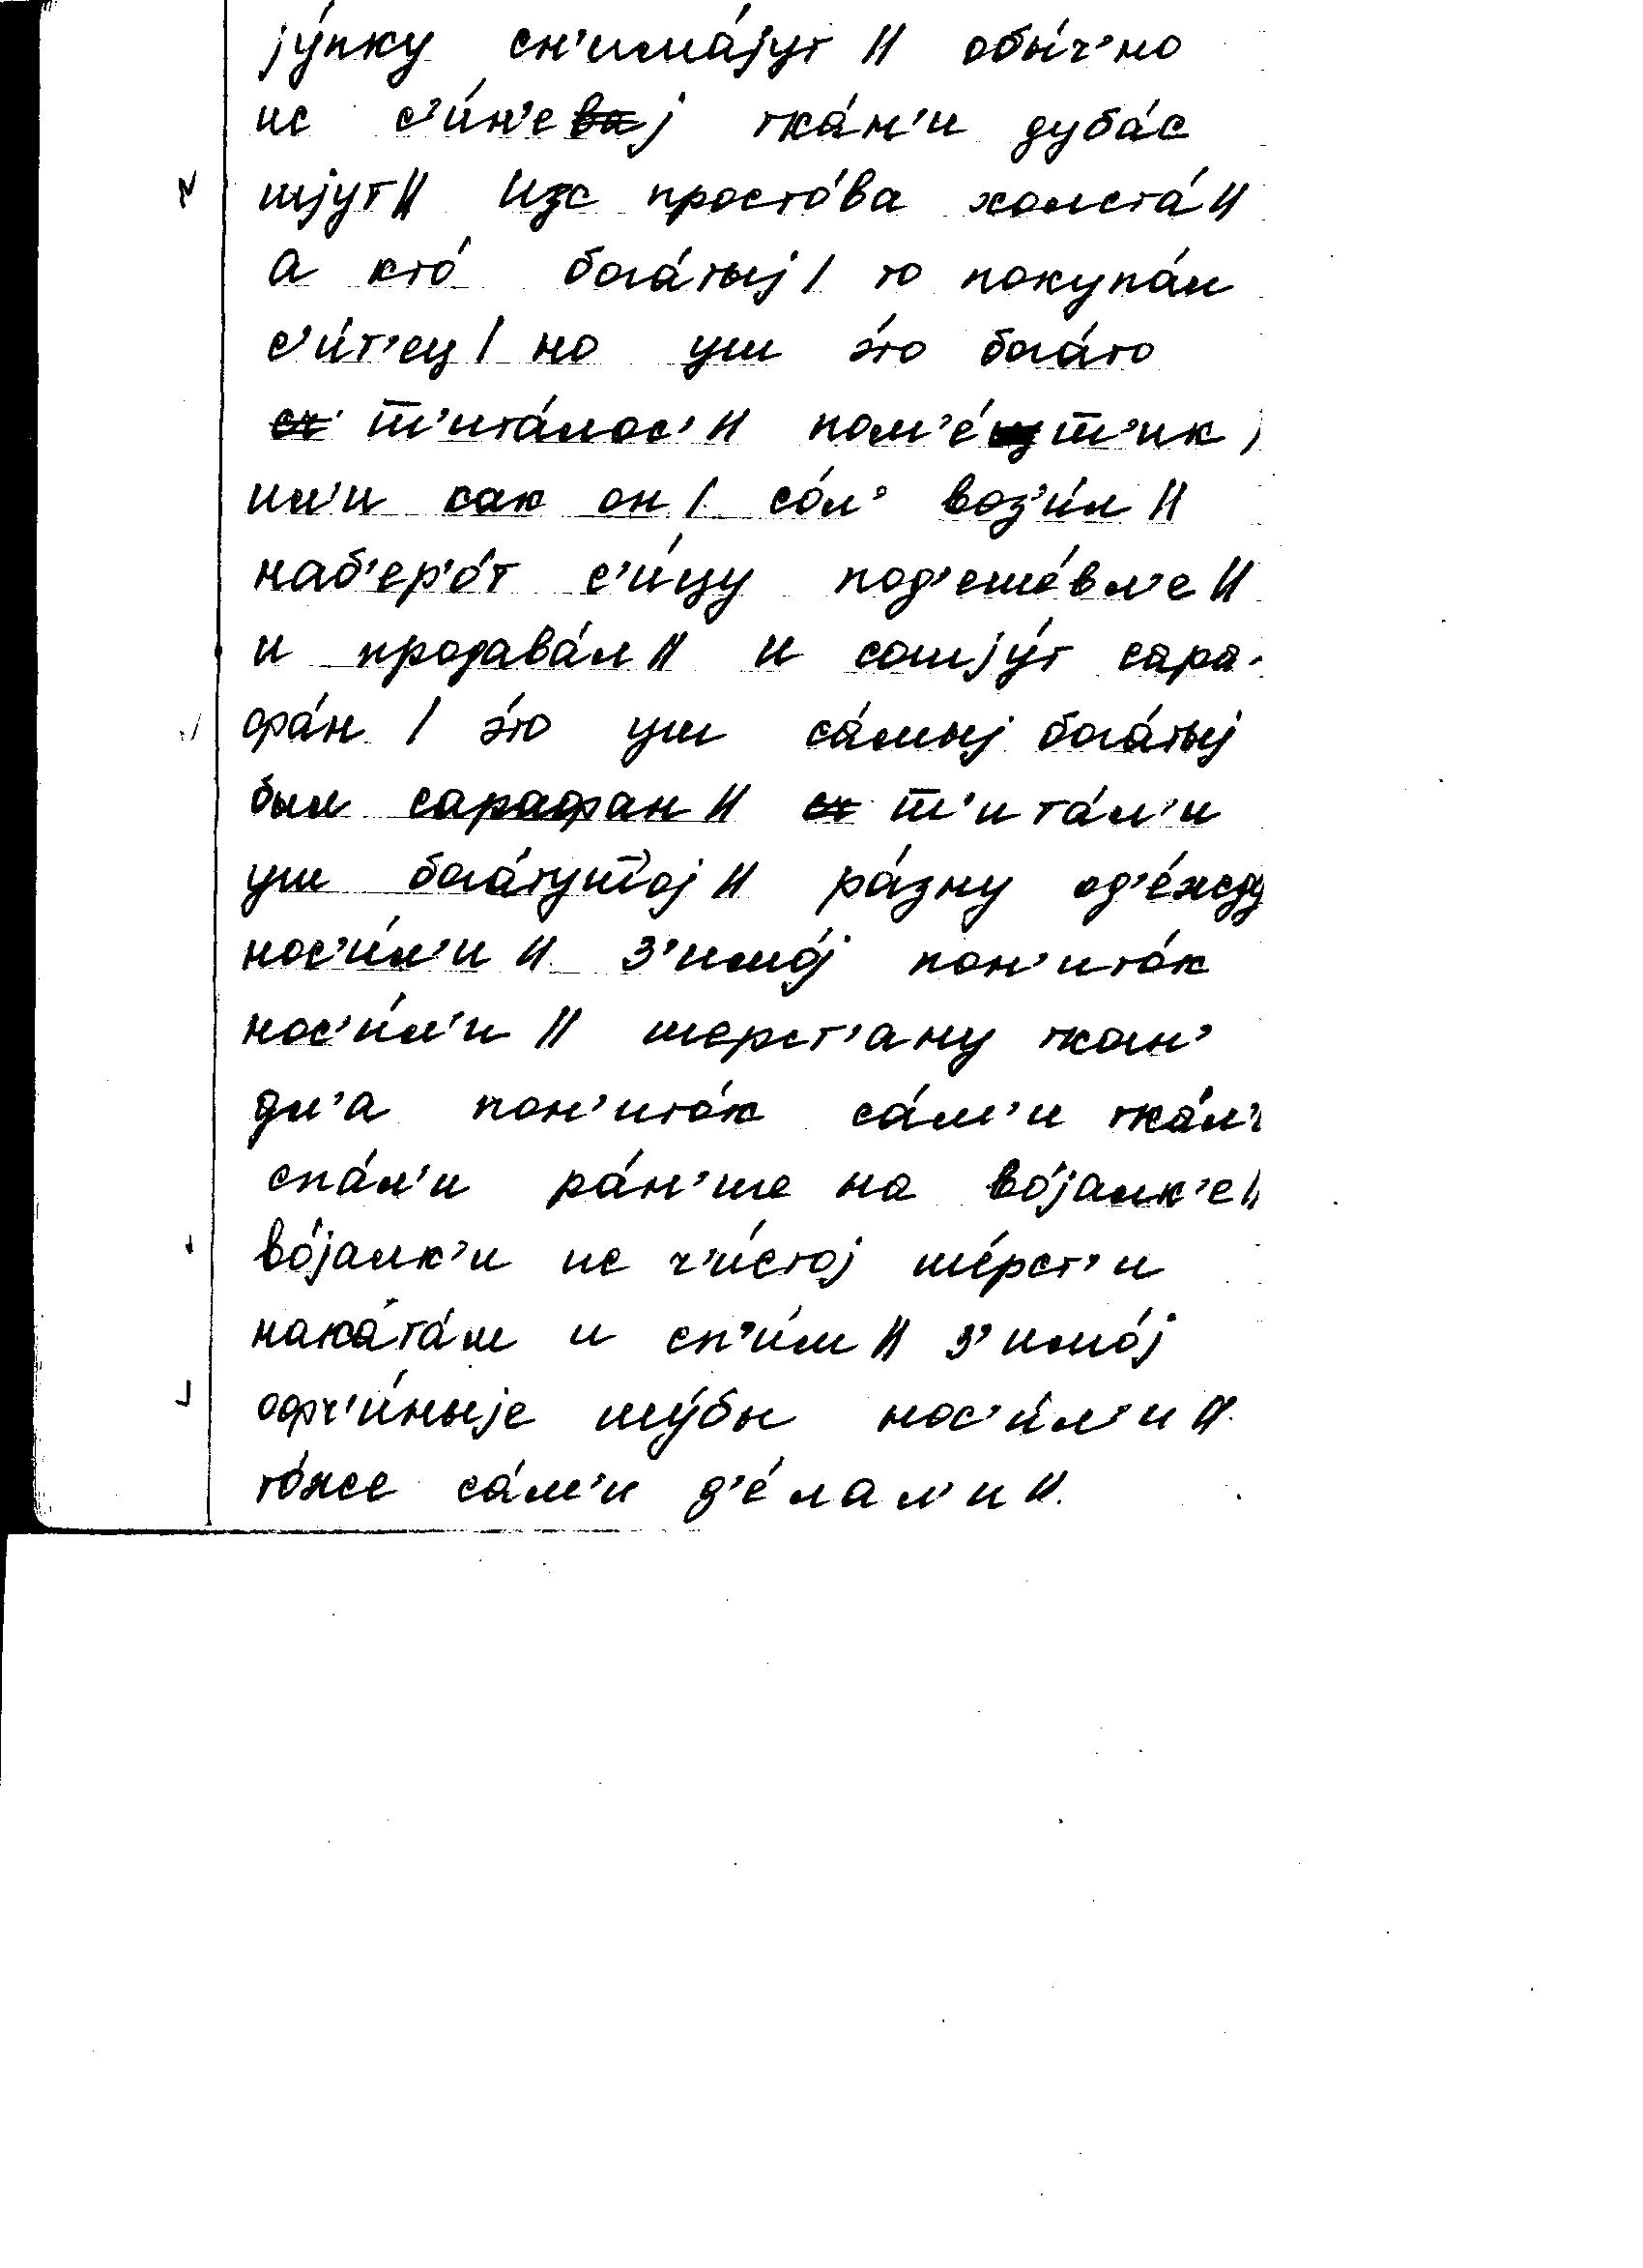 jу́пку сн'има́jут // обы́ч'но
ис с'и́н'еj тка́н'и дуба́с
шjут // Ис просто́ва холста́ //
а кто́ бога́тыj / то покупа́л
с'и́т'ец / но уш э́то бога́то
ш̅'ита́лос' // пом'е́ш̅'ик /
ил'и как он / со́л' воз'и́л //
наб'ер'о́т с'и́цу под'еше́вл'е //
и продава́л // и сошjу́т сара-
фа́н / э́то уш са́мыj бога́тыj
был сарафан // ш̅'ита́л'и
уш бога́туш̅оj // ра́зну од'е́жду
нос'и́л'и // З'имо́j пон'ито́к
нос'и́л'и // шерст'ану ткан'
дл'а пон'ито́к са́м'и тка́л'и
спа́л'и ра́н'ше на во́jалк'е //
во́jалк'и ис ч'и́стоj ше́рст'и
наката́м и сп'и́м // з'имо́j
офч'и́ныjе шу́бы нос'и́л'и //
то́же са́м'и д'е́лал'и //.